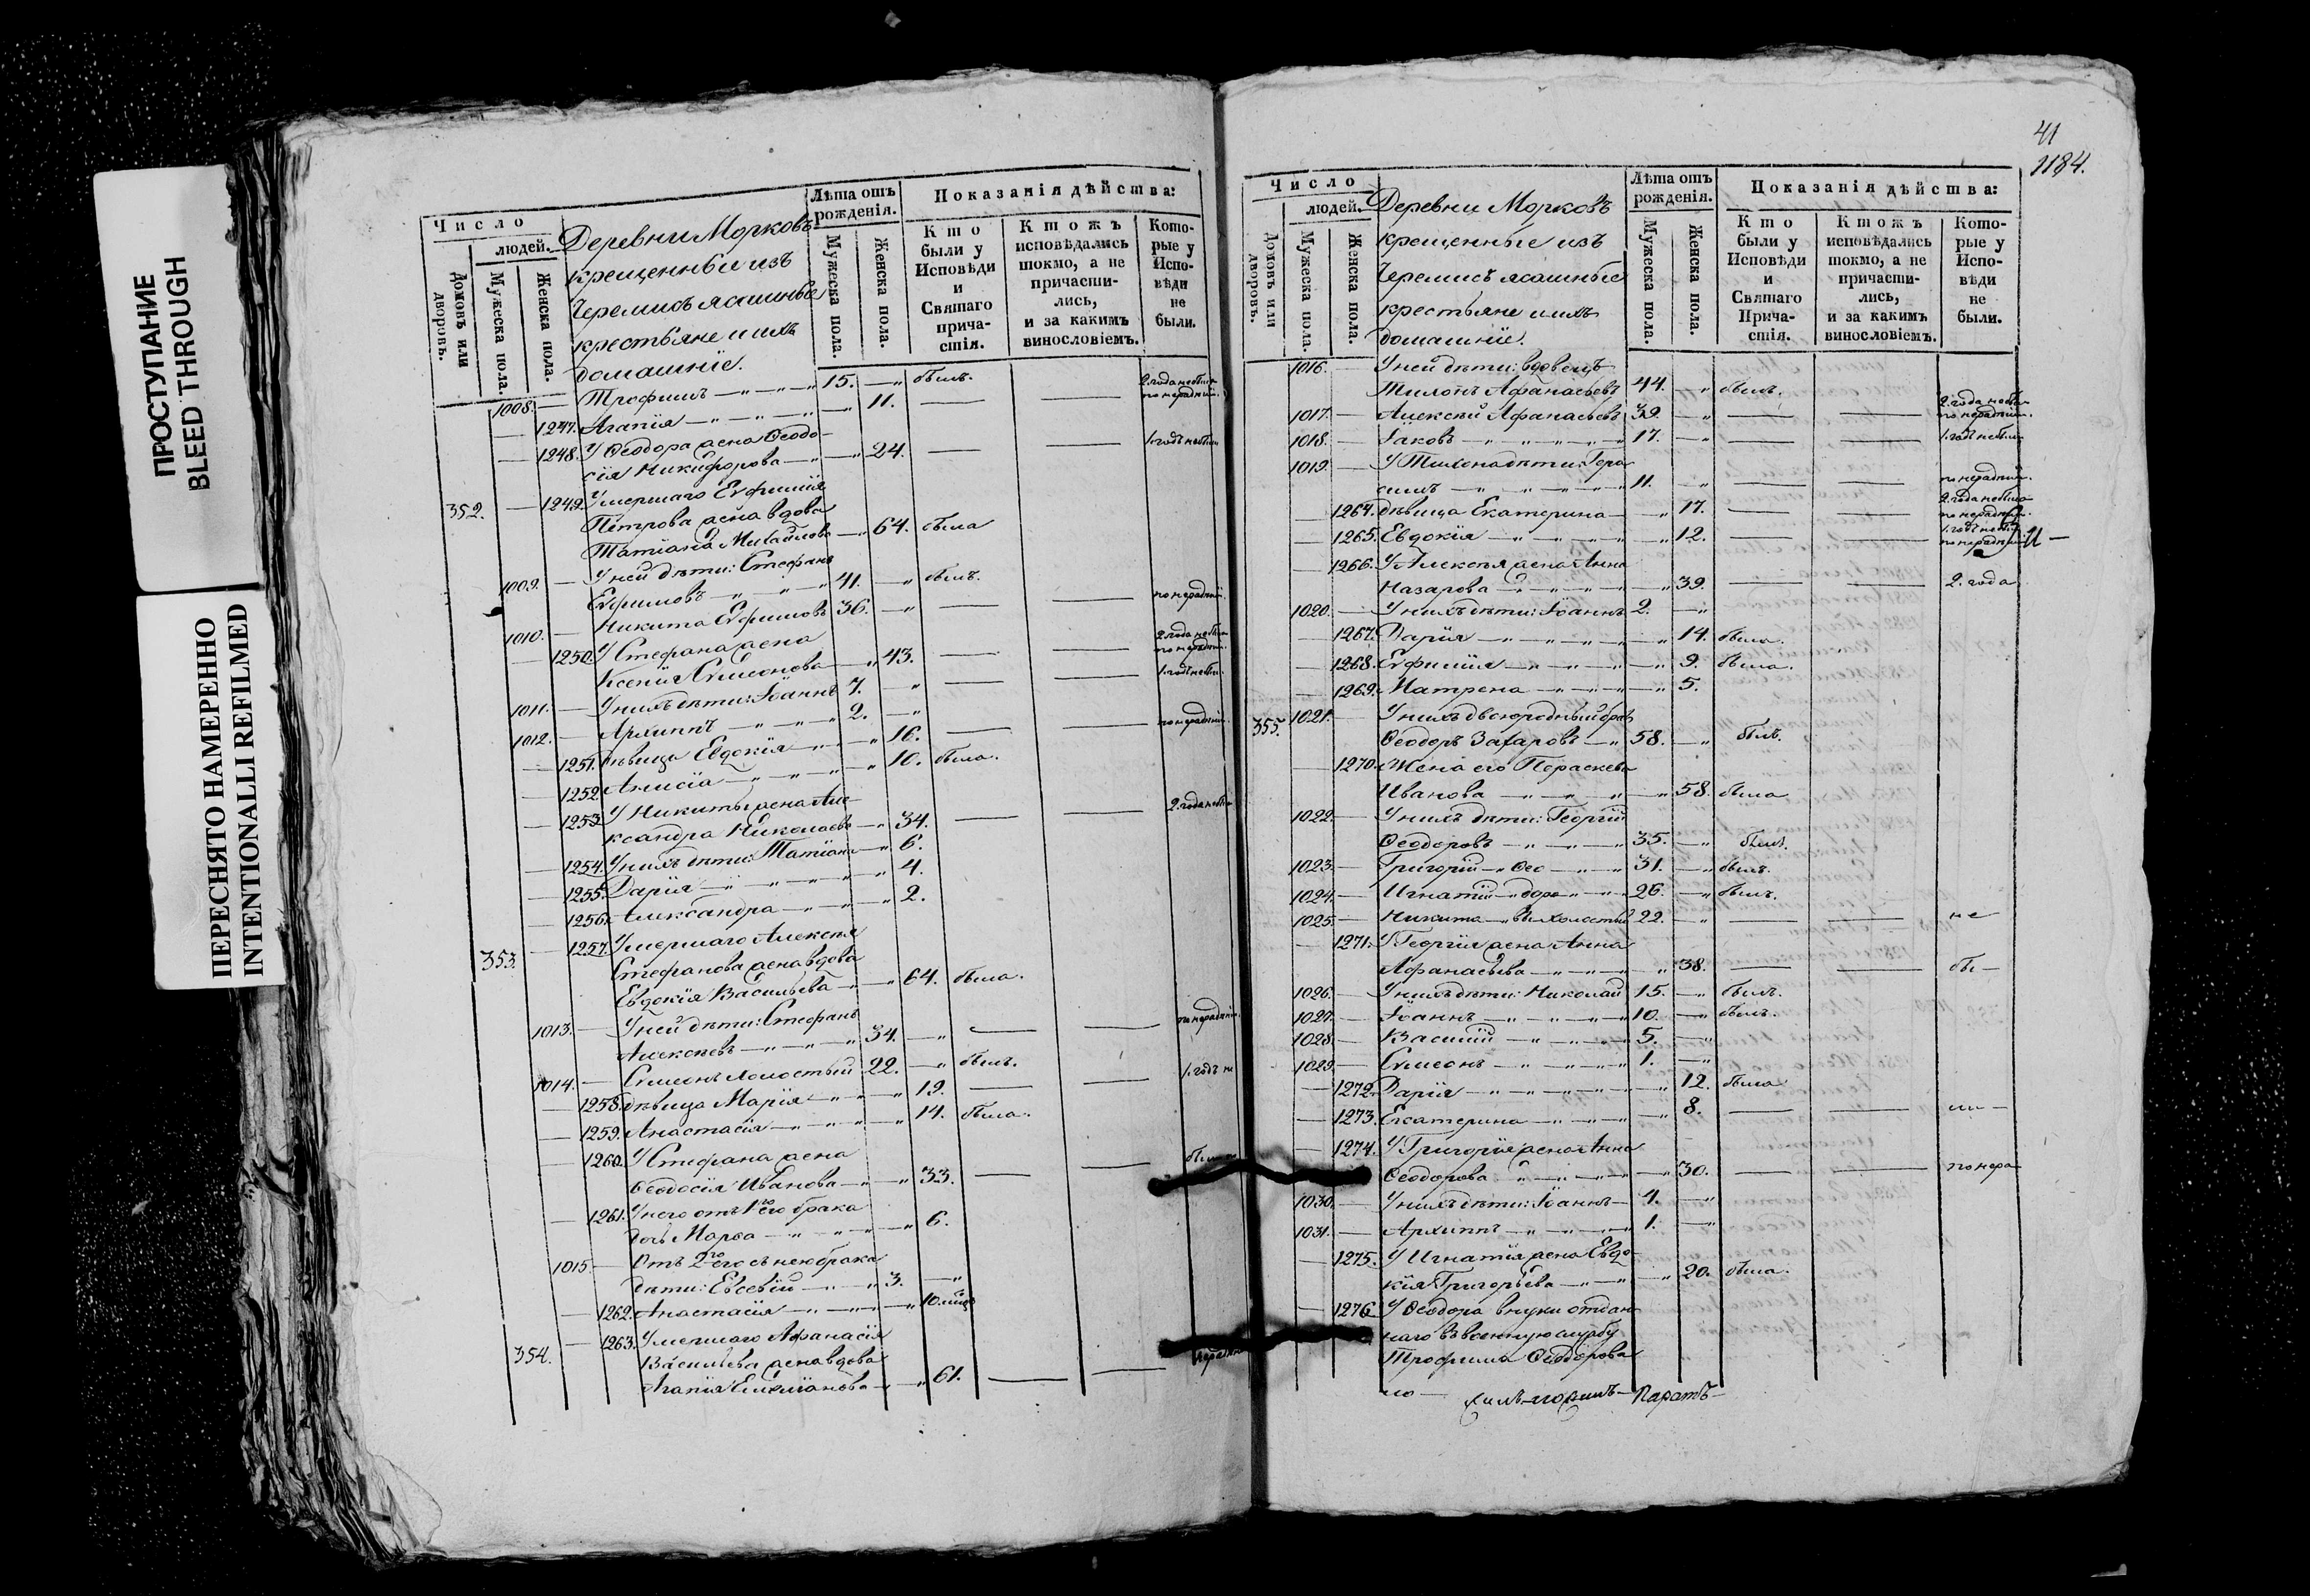 ПРОСТУПАНИЕ
BLEED THROUGH
ПЕРЕСНЯТО НАМЕРЕННО
INTENTIONALLI REFILMED
Число
людей.
Домовъ или дворовъ.
Мужеска пола.
Женска пола.
Деревни Морковъ
крещенные изъ
Черемисъ ясашные
крестьяне и ихъ
домашніе.
Лѣта отъ рожденія.
Мужеска пола.
Женска пола.
Показанія дѣйства:
Кто были у Исповѣди и Святаго причастія.
Ктожъ исповѣдались токмо, а не причастились, и за какимъ винословіемъ.
Которые у Исповѣди не были.
1008. — Трофимъ — 15. — былъ.
— 1247. Агапія — 11. — — 2 года не была по нерадѣнію.
— 1248. У Ѳеодора жена Ѳеодо-
сія Никифорова — 24. — — 1. годъ не была
352. — 1249. Умершаго Евфимія
Петрова жена вдова
Татіана Михайлова — 64. была
1009. — У ней дѣти: Стефанъ
Евфимовъ — 41. — былъ.
1010. — Никита Евфимовъ 36. — — — по нерадѣнію.
— 1250. У Стефана жена
Ксенія Симеонова — 43. — — 2 года не была по нерадѣнію.
1011. — У нихъ дѣти: Іоаннъ 7. — — — 1. годъ не былъ.
1012. — Архиппъ — 2. —
— 1251. Дѣвица Евдокія — 16. — — по нерадѣнію.
— 1252. Анисія — 10. была.
— 1253. У Никиты жена Але-
ксандра Николаева — 34. — — 2. года не была
— 1254. У нихъ дѣти: Татіана — 6.
— 1255. Дарія — 4.
— 1256. Александра — 2.
353. — 1257. Умершаго Алексѣя
Стефанова жена вдова
Евдокія Васильева — 64. была.
1013. — У ней дѣти: Стефанъ
Алексѣевъ — 34. — — — по нерадѣнію.
1014. — Симеонъ холостый 22. — былъ.
— 1258. Дѣвица Марія — 19. — — 1. годъ не
— 1259. Анастасія — 14. была.
— 1260. У Стефана жена
Ѳеодосія Иванова — 33. — —
— 1261. У него отъ 1го брака
дочь Марѳа — 6.
1015. — Отъ 2го съ нею брака
дѣти: Евсевій — 3. —
— 1262. Анастасія — 10.
354. — 1263. Умершаго Афанасія
Васильева жена вдова
Агапія Емеліанова — 61. — —
41
1184.
Число
людей.
Домовъ или дворовъ.
Мужеска пола.
Женска пола.
Деревни Морковъ
крещенные изъ
Черемисъ ясашные
крестьяне и ихъ
домашніе.
Лѣта отъ рожденія.
Мужеска пола.
Женска пола.
Показанія дѣйства:
Кто были у Исповѣди и Святаго Причастія.
Ктожъ исповѣдались токмо, а не причастились, и за какимъ винословіемъ.
Которые у Исповѣди не были.
1016. — У ней дѣти: вдовецъ
Тихонъ Афанасьевъ 44. — былъ.
1017. — Алексѣй Афанасьевъ 39. — — — 2. года не былъ по нерадѣнію.
1018. — Іаковъ — 17. — — — 1. годъ не былъ
1019. — У Тихона дѣти: Гера-
симъ — 11. — — — по нерадѣнію.
— 1264. дѣвица Екатерина — 17. — — 2. года не была по нерадѣнію.
— 1265. Евдокія — 12. — — 1. годъ не была по нерадѣнію
— 1266. У Алексѣя жена Анна
Назарова — 39. — — 2. года
1020. — У нихъ дѣти: Іоаннъ 2. —
— 1267. Дарія — 14. была.
— 1268. Евфимія — 9. была.
— 1269. Матрена — 5.
355. 1021. — У нихъ двоюродный братъ
Ѳеодоръ Захаровъ — 58. — былъ.
— 1270. Жена его Параскева
Иванова — 58. была
1022. — У нихъ дѣти: Георгій
Ѳеодоровъ — 35. — былъ.
1023. — Григорій — Ѳео — 31. — былъ.
1024. — Игнатій — доро — 26. — былъ.
1025. — Никита — вы холостый 22. — — — не
— 1271. У Георгія жена Анна
Афанасьева — 38. — — бы —
1026. — У нихъ дѣти: Николай 15. — былъ.
1027. — Іоаннъ — 10. — былъ.
1028. — Василій — 5. —
1029. — Симеонъ — 1. —
— 1272. Дарія — 12. была
— 1273. Екатерина — 8. — — ли —
— 1274. У Григорія жена Анна
Ѳеодорова — 30. — — по нера
1030. — У нихъ дѣти: Іоаннъ — 4. —
1031. — Архиппъ — 1. —
— 1275. У Игнатія жена Евдо-
кія Григорьева — 20. была.
— 1276. У Ѳеодора внуки отдан-
наго въ военную службу
Трофима Ѳеодорова